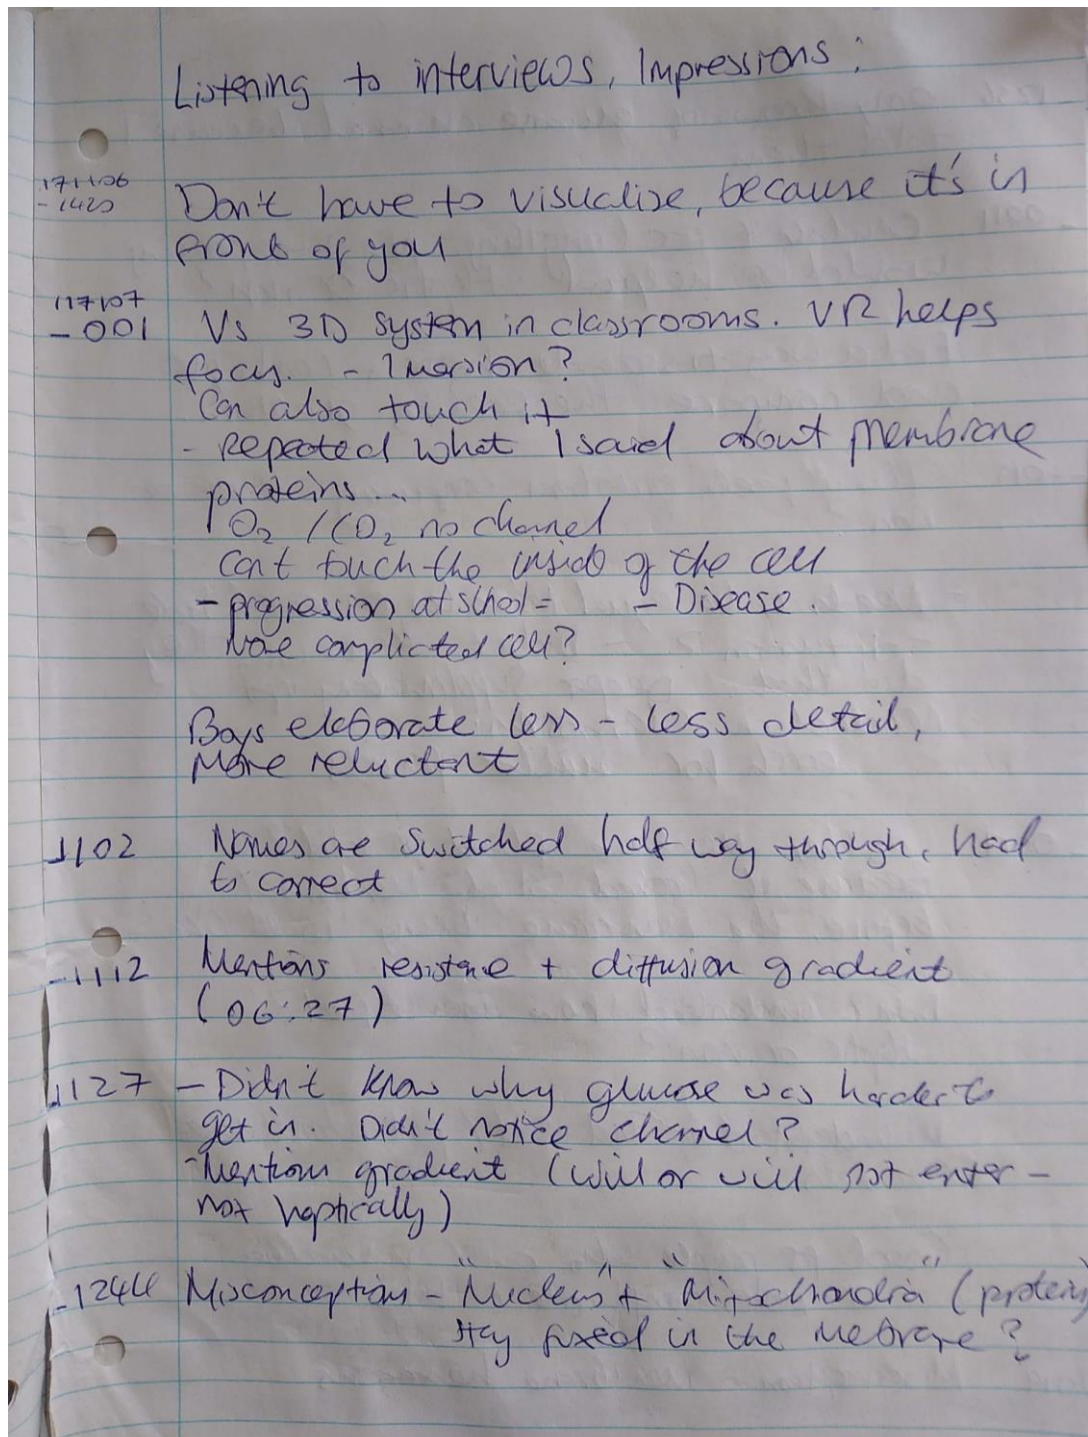 Listening to interviews, Impressions:
171106
Don't have to visualise, because it's in
front of you
117107
-001 Vs 3D system in classrooms. VR helps
focus. - Imersion?
Can also touch it
- Repeated what I said about membrane
proteins...
O2 / CO2 no channel
Can't touch the inside of the cell
- progression at school = - Disease.
More complicted cell?
Boys elaborate less - less detail,
More reluctant
1102 Names are switched half way through, had
to correct
-1112 Mentions resistance + diffusion gradient
(06:27)
1127 - Didn't know why glucose was harder to
get in. Didn't notice channel?
- Mentions gradient (will or will not enter -
not haptically)
-1244 Misconception - "Nucleus" + "Mitochondria" (protein)
stay fixed in the mebrane?